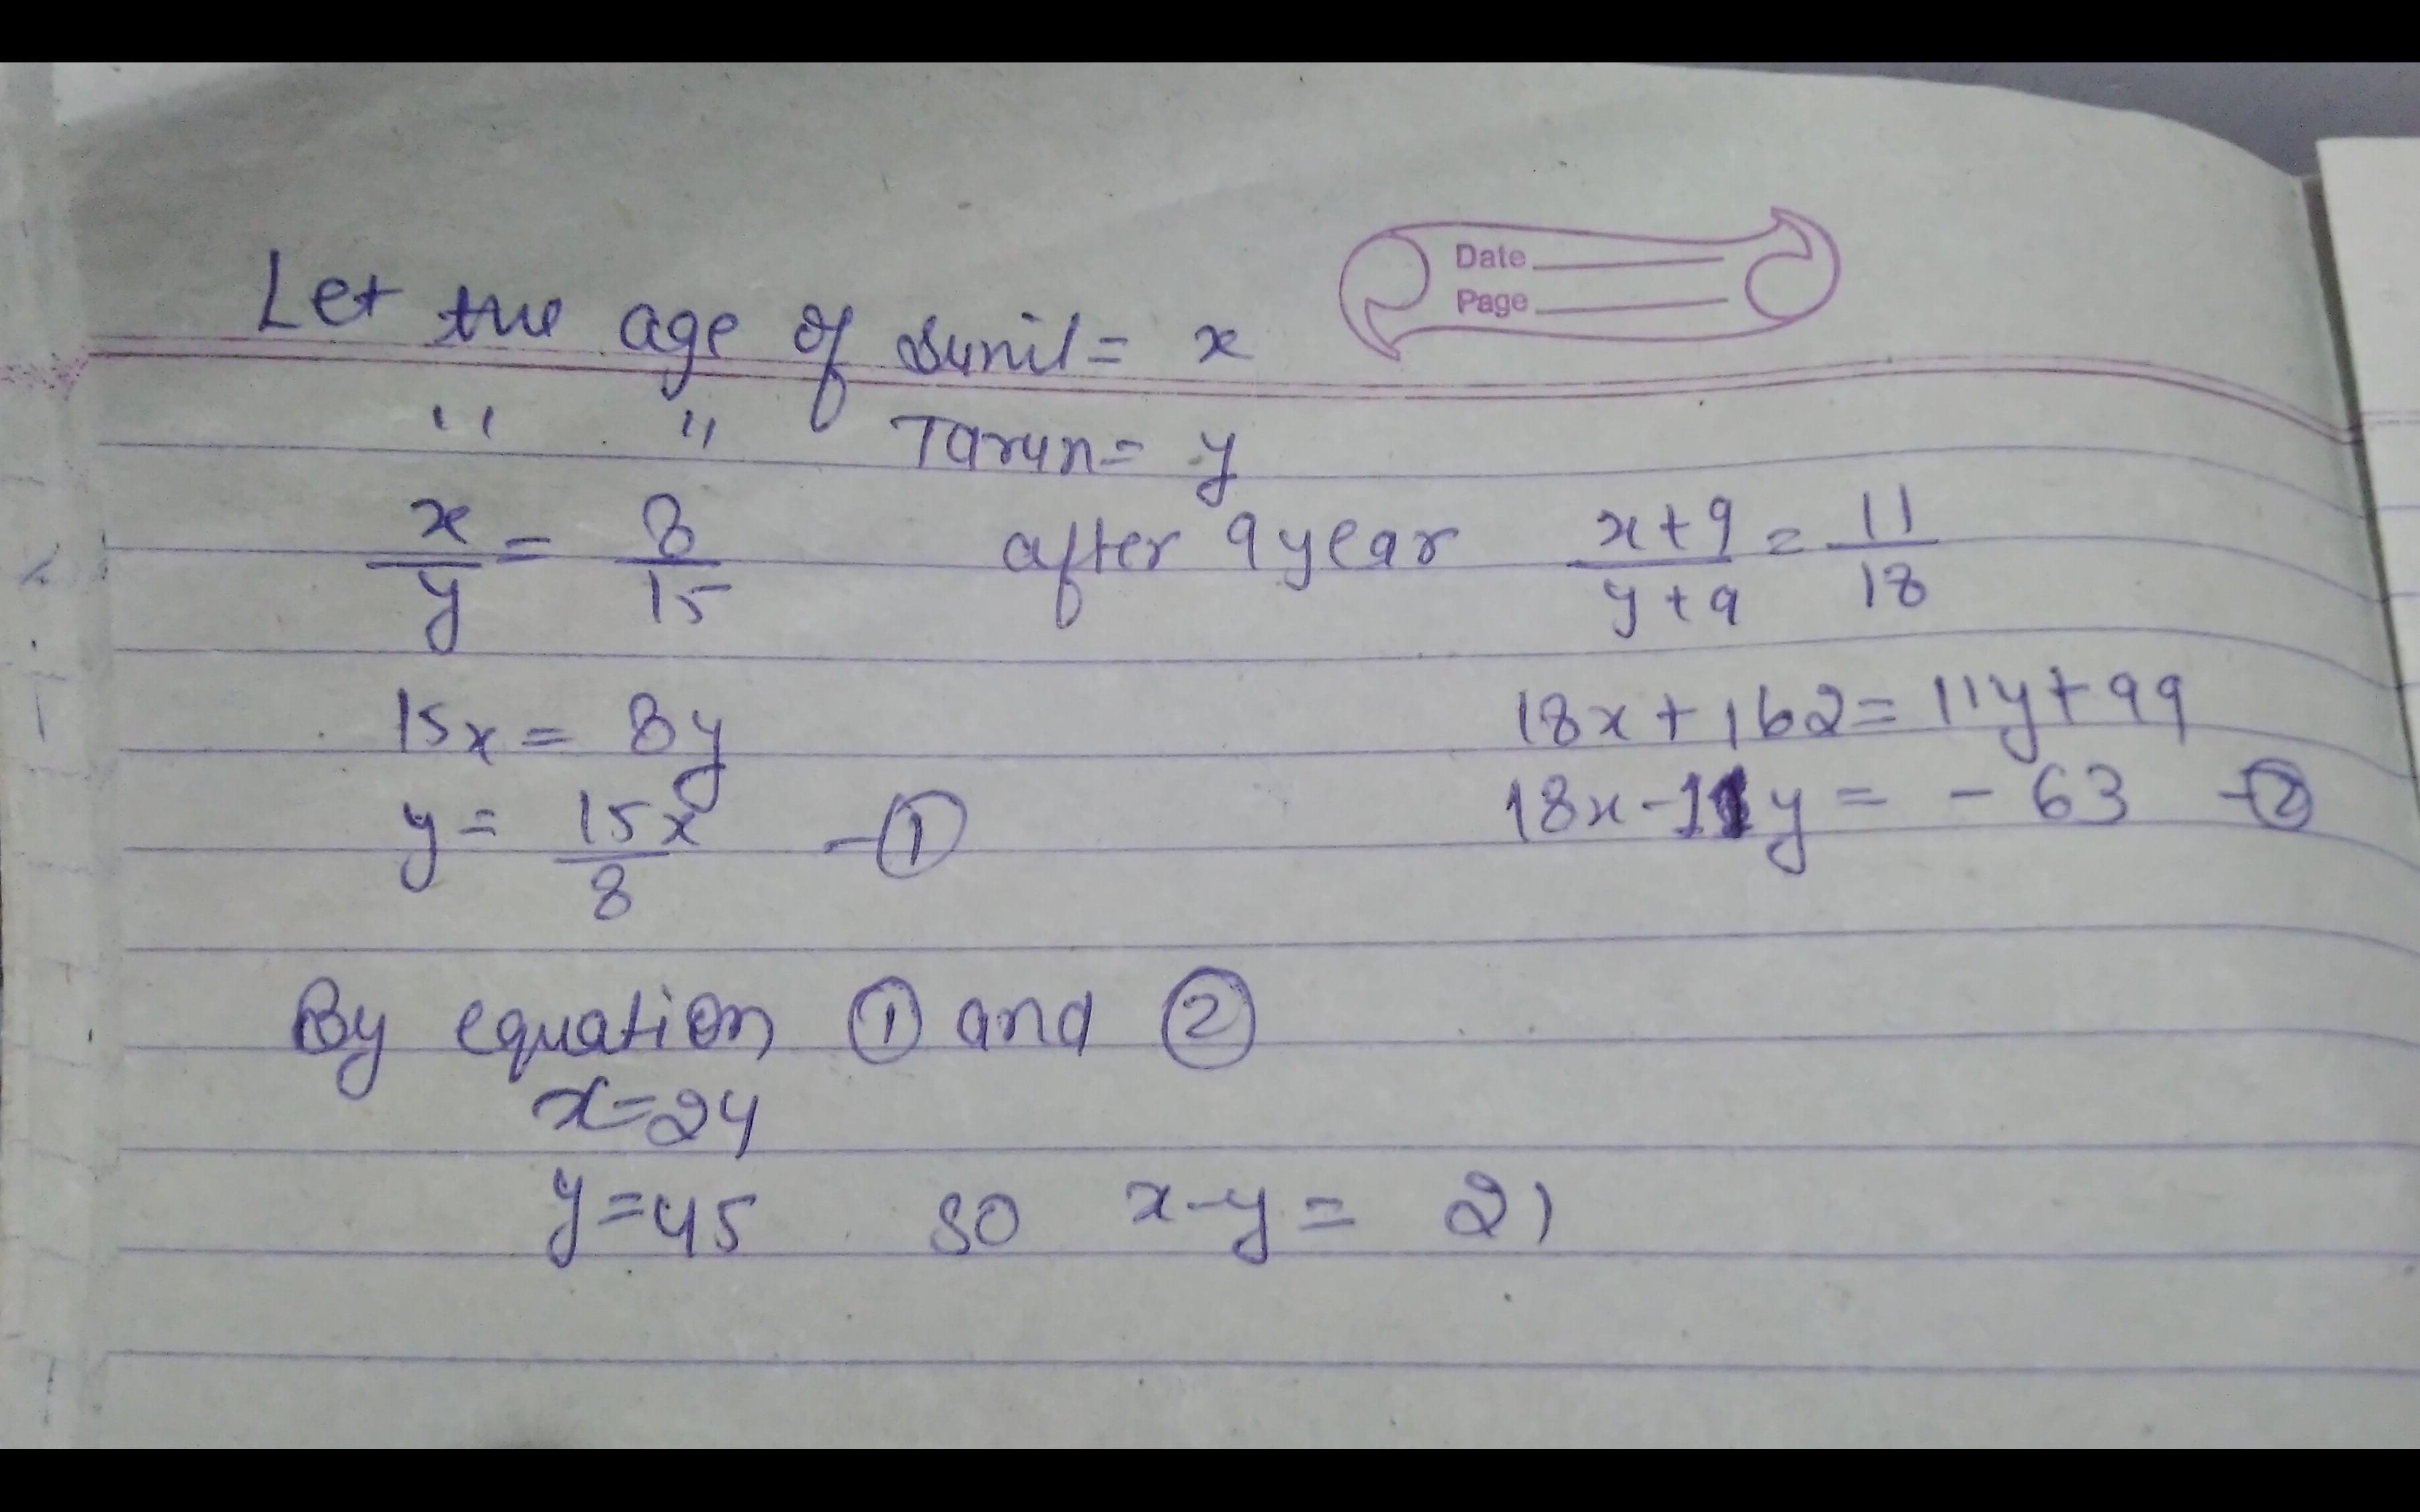 Date
Page
Let the age of Sunil = x
" " Tarun = y
x/y = 8/15 after 9 year x+9/y+9 = 11/18
15x = 8y 18x + 162 = 11y + 99
y = 15x/8 - ① 18x - 11y = - 63 - ②
By equation ① and ②
x = 24
y = 45 so x - y = 21